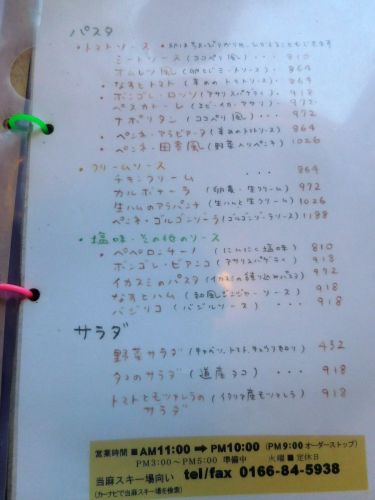 パスタ
・トマトソース
ミートソース (ココペリ風) ・・・ 810
オムレツ風 (卵とじミートソース) 864
・なすとトマト (辛めのトマトソース) 864
・ボンゴレ・ロッソ (アサリスパゲティ) 918
ペスカトーレ (エビ・イカ・アサリ) 972
ナポリタン (ココペリ風) ・・・ 972
・ペンネ・アラビアータ (辛めのトマトソース) 864
・ペンネ・田舎風 (野菜入りペンネ) 1026
・クリームソース
チキンクリーム ・・・ 864
カルボナーラ (卵黄・生クリーム) 972
生ハムのアラパンナ (生ハムと生クリーム) 1026
ペンネ・ゴルゴンゾーラ (ゴルゴンゾーラソース) 1188
・塩味・その他のソース
・ペペロンチーノ (にんにく塩味) 810
ボンゴレ・ビアンコ (アサリスパゲティ) 918
イカスミのパスタ (イカスミの練り込みパスタ) 972
なすとハム (和風ジンジャーソース) 918
バジリコ (バジルソース) ・・・ 918
サラダ
野菜サラダ (キャベツ、トマト、キュウリ) 432
タコのサラダ (道産タコ) ・・・ 918
トマトとモッツァレラの (イタリア産モッツァレラ) 918
サラダ
営業時間 ■ AM11:00 ➡ PM10:00 (PM9:00オーダーストップ)
PM3:00〜PM5:00 準備中 火曜 ■ 定休日
当麻スキー場向い tel/fax 0166-84-5938
(カーナビで当麻スキー場を検索)